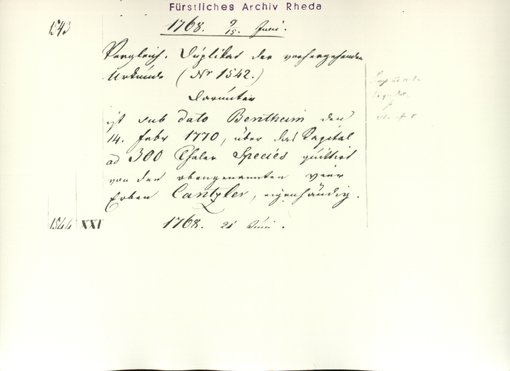 Fürstliches Archiv Rheda
1543
1768. 9/15. Juni.
Vergleich. Duplikat der vorhergehenden
Urkunde (Nr 1542.)
Darunter
ist sub dato Bentheim den
14. Febr 1770, über das Capital
ad 300 Thaler Species quittirt
von den obengenannten vier
Erben Cantzler, eigenhändig.
1544 XXI 1768. 21 Juni.